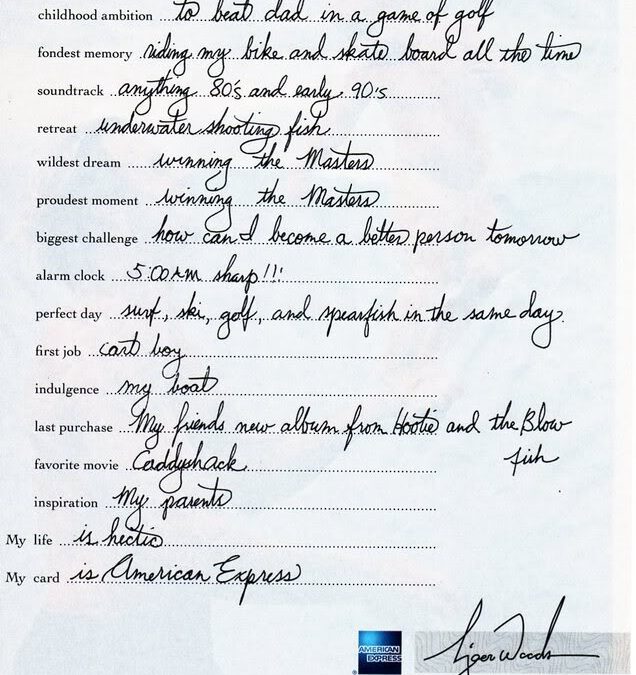 childhood ambition to beat dad in a game of golf
fondest memory riding my bike and skate board all the time
soundtrack anything 80's and early 90's
retreat underwater shooting fish
wildest dream winning the Masters
proudest moment winning the Masters
biggest challenge how can I become a better person tomorrow
alarm clock 5:00 AM sharp!!!
perfect day surf, ski, golf, and spearfish in the same day.
first job cart boy
indulgence my boat
last purchase My friends new album from Hootie and the Blow
fish
favorite movie Caddyshack
inspiration My parents
My life is hectic
My card is American Express
AMERICAN EXPRESS
Tiger Woods